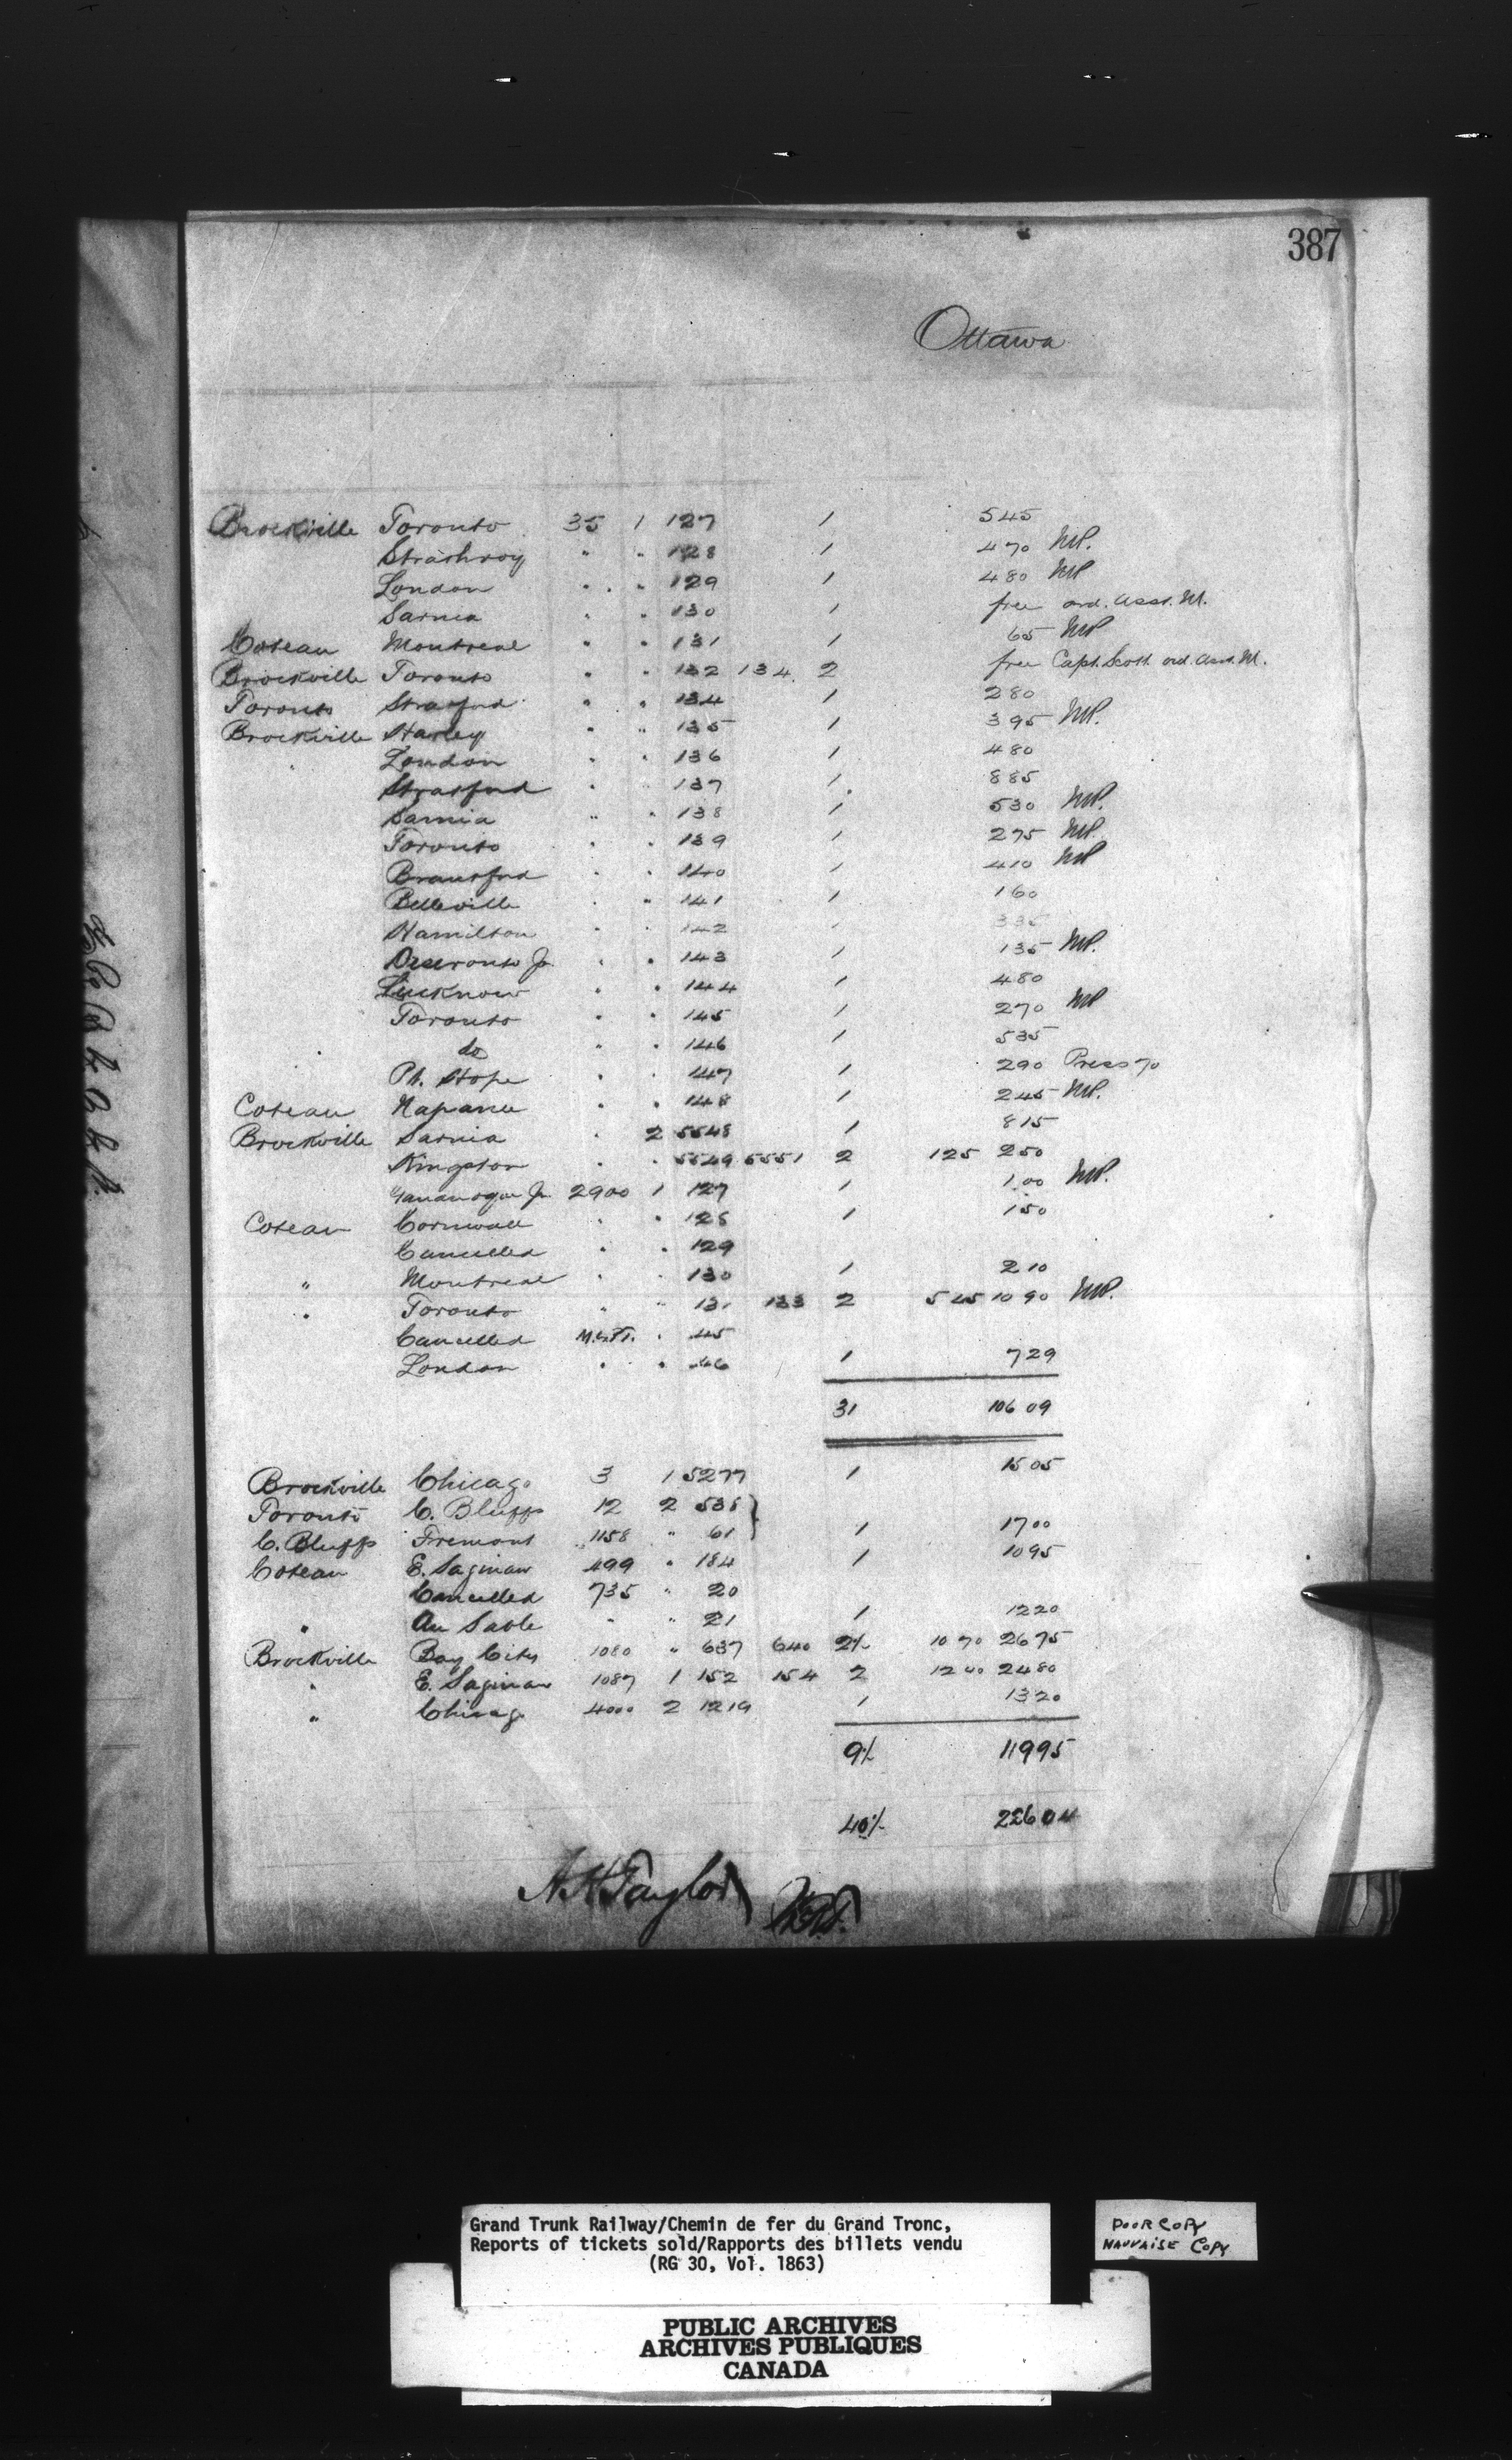 387
Ottawa
Brockville Toronto 35 1 127 1 545
Strathroy " " 128 1 470 MP.
London " " 129 1 480 MP
Sarnia " " 130 1 free ord. Asst. M.
Coteau Montreal " " 131 1 65 MP
Brockville Toronto " " 132 134 2 free Capt. Scott ord. Asst. M.
Toronto Stratford " " 134 1 280
Brockville Harley " " 135 1 395 MP.
London " " 136 1 480
Stratford " 137 1 885
Sarnia " " 138 1 530 MP.
Toronto " " 139 1 275 MP.
Brantford " " 140 1 410 MP
Belleville " " 141 1 160
Hamilton " " 142 1 335
Deseronto Jc. " " 143 1 135 MP.
Lucknow " " 144 1 480
Toronto " " 145 1 270 MP
do " " 146 1 535
Pt. Hope " " 147 1 290 Press 70
Coteau Napanee " " 148 1 245 MP.
Brockville Sarnia " 2 5548 1 815
Kingston " " 5549 5551 2 125 250
Gananoque Jc. 2900 1 127 1 1.00 MP.
Coteau Cornwall " " 128 1 150
Cancelled " " 129
" Montreal " " 130 1 210
" Toronto " " 131 133 2 545 10 90 MP.
Cancelled " 45
London " " 46 1 729
31 106 09
Brockville Chicago 3 1 5277 1 15 05
Toronto C. Bluffs 12 2 538
C. Bluffs Fremont 1158 " 61 1 17 00
Coteau E. Saginaw 499 " 184 1 10 95
Cancelled 735 " 20
" Au Sable " " 21 1 12 20
Brockville Bay City 1080 " 637 640 2½ 10 70 26 75
" E. Saginaw 1087 1 152 154 2 12 40 24 80
" Chicago 4000 2 1219 1 13 20
9½ 119 95
40½ 226 04
A H Taylor
Grand Trunk Railway/Chemin de fer du Grand Tronc,
Reports of tickets sold/Rapports des billets vendu
(RG 30, Vol. 1863)
POOR COPY
MAUVAISE COPY
PUBLIC ARCHIVES
ARCHIVES PUBLIQUES
CANADA